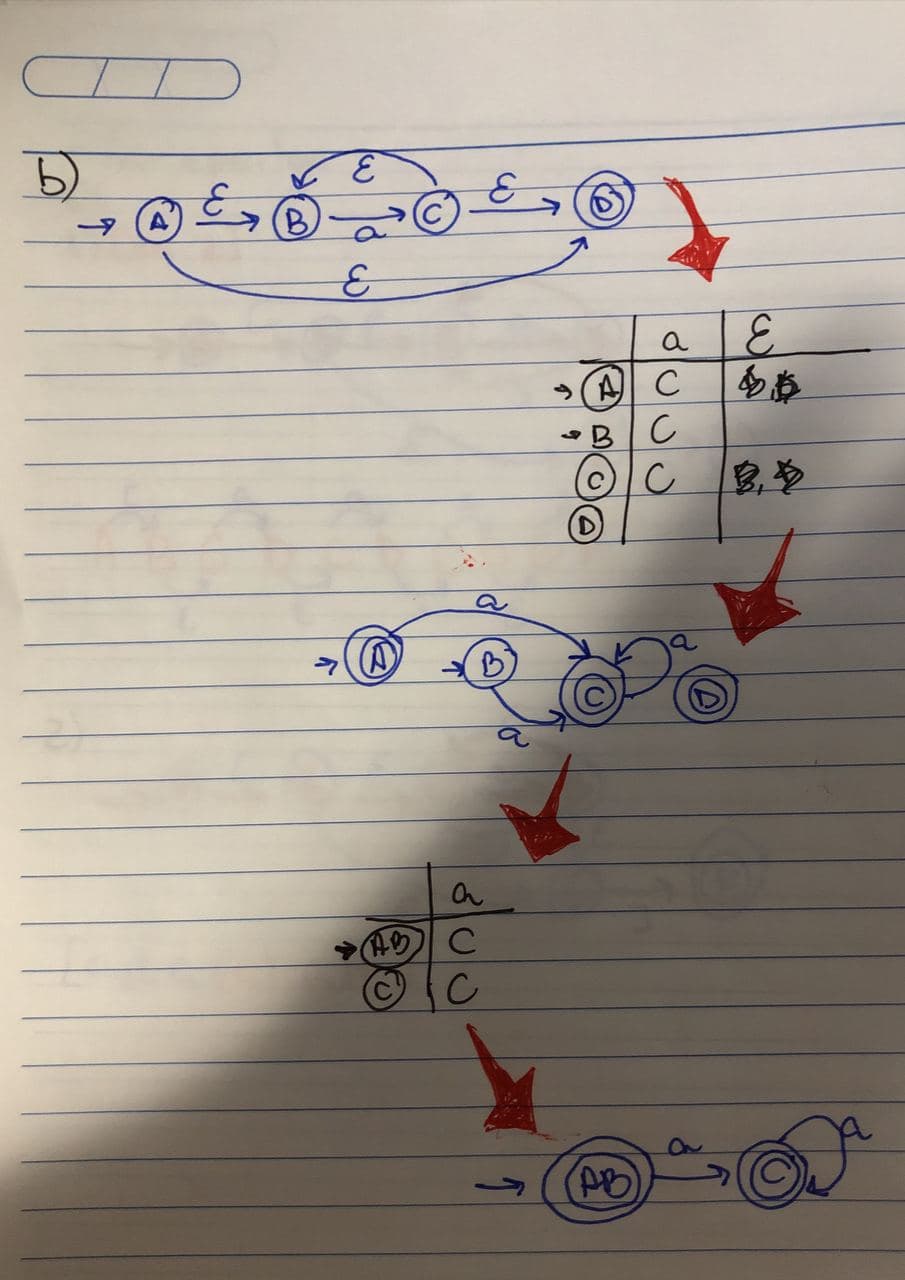 b)
ε
→ A ε → B a → C ε → D
ε
a ε
→ A C
→ B C
C C
D
a
→ A → B C a D
a
a
→ AB C
C C
→ AB a → C a